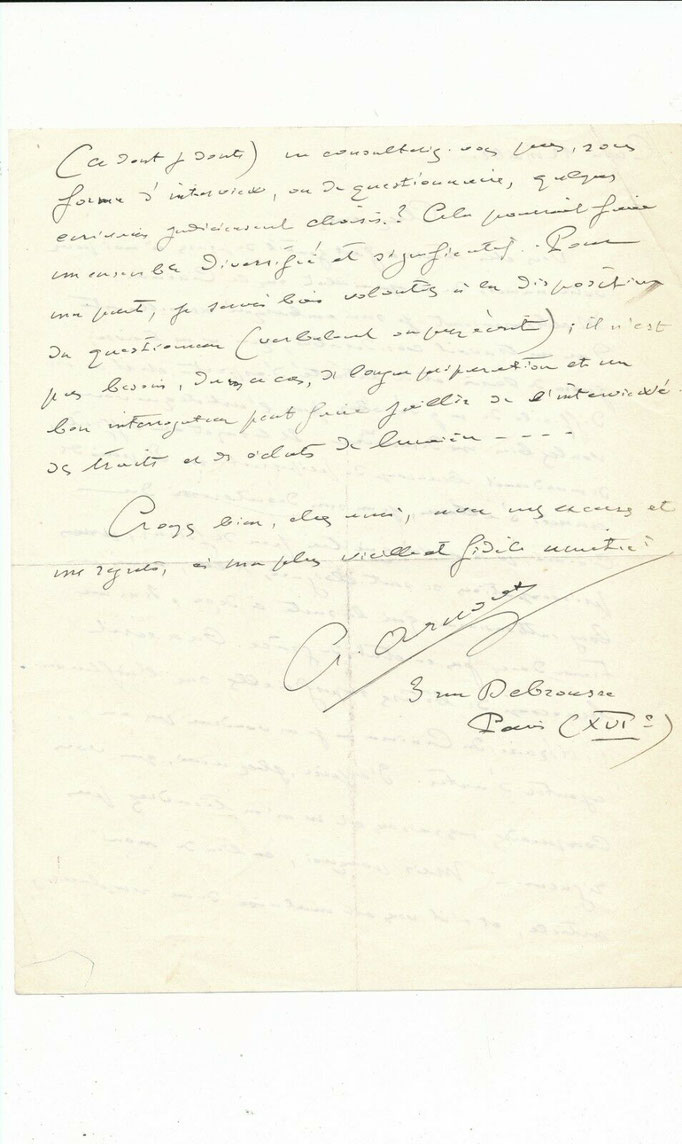 (ce dont je doute) ne consulteriez-vous pas, sous
forme d'interview, ou de questionnaire, quelques
écrivains judicieusement choisis? Cela pourrait faire
un ensemble diversifié et significatif. Pour
ma part, je serais bien volontiers à la disposition
du questionneur (verbalement ou par écrit) ; il n'est
pas besoin, dans ce cas, de longue préparation et un
bon interrogateur peut faire jaillir de l'interviewé
des traits et des éclats de lumière - - - -
Croyez bien, cher ami, avec mes excuses et
mes regrets, à ma plus vieille et fidèle amitié.
A. Arnoux
3 rue Debrousse
Paris (XVIe)